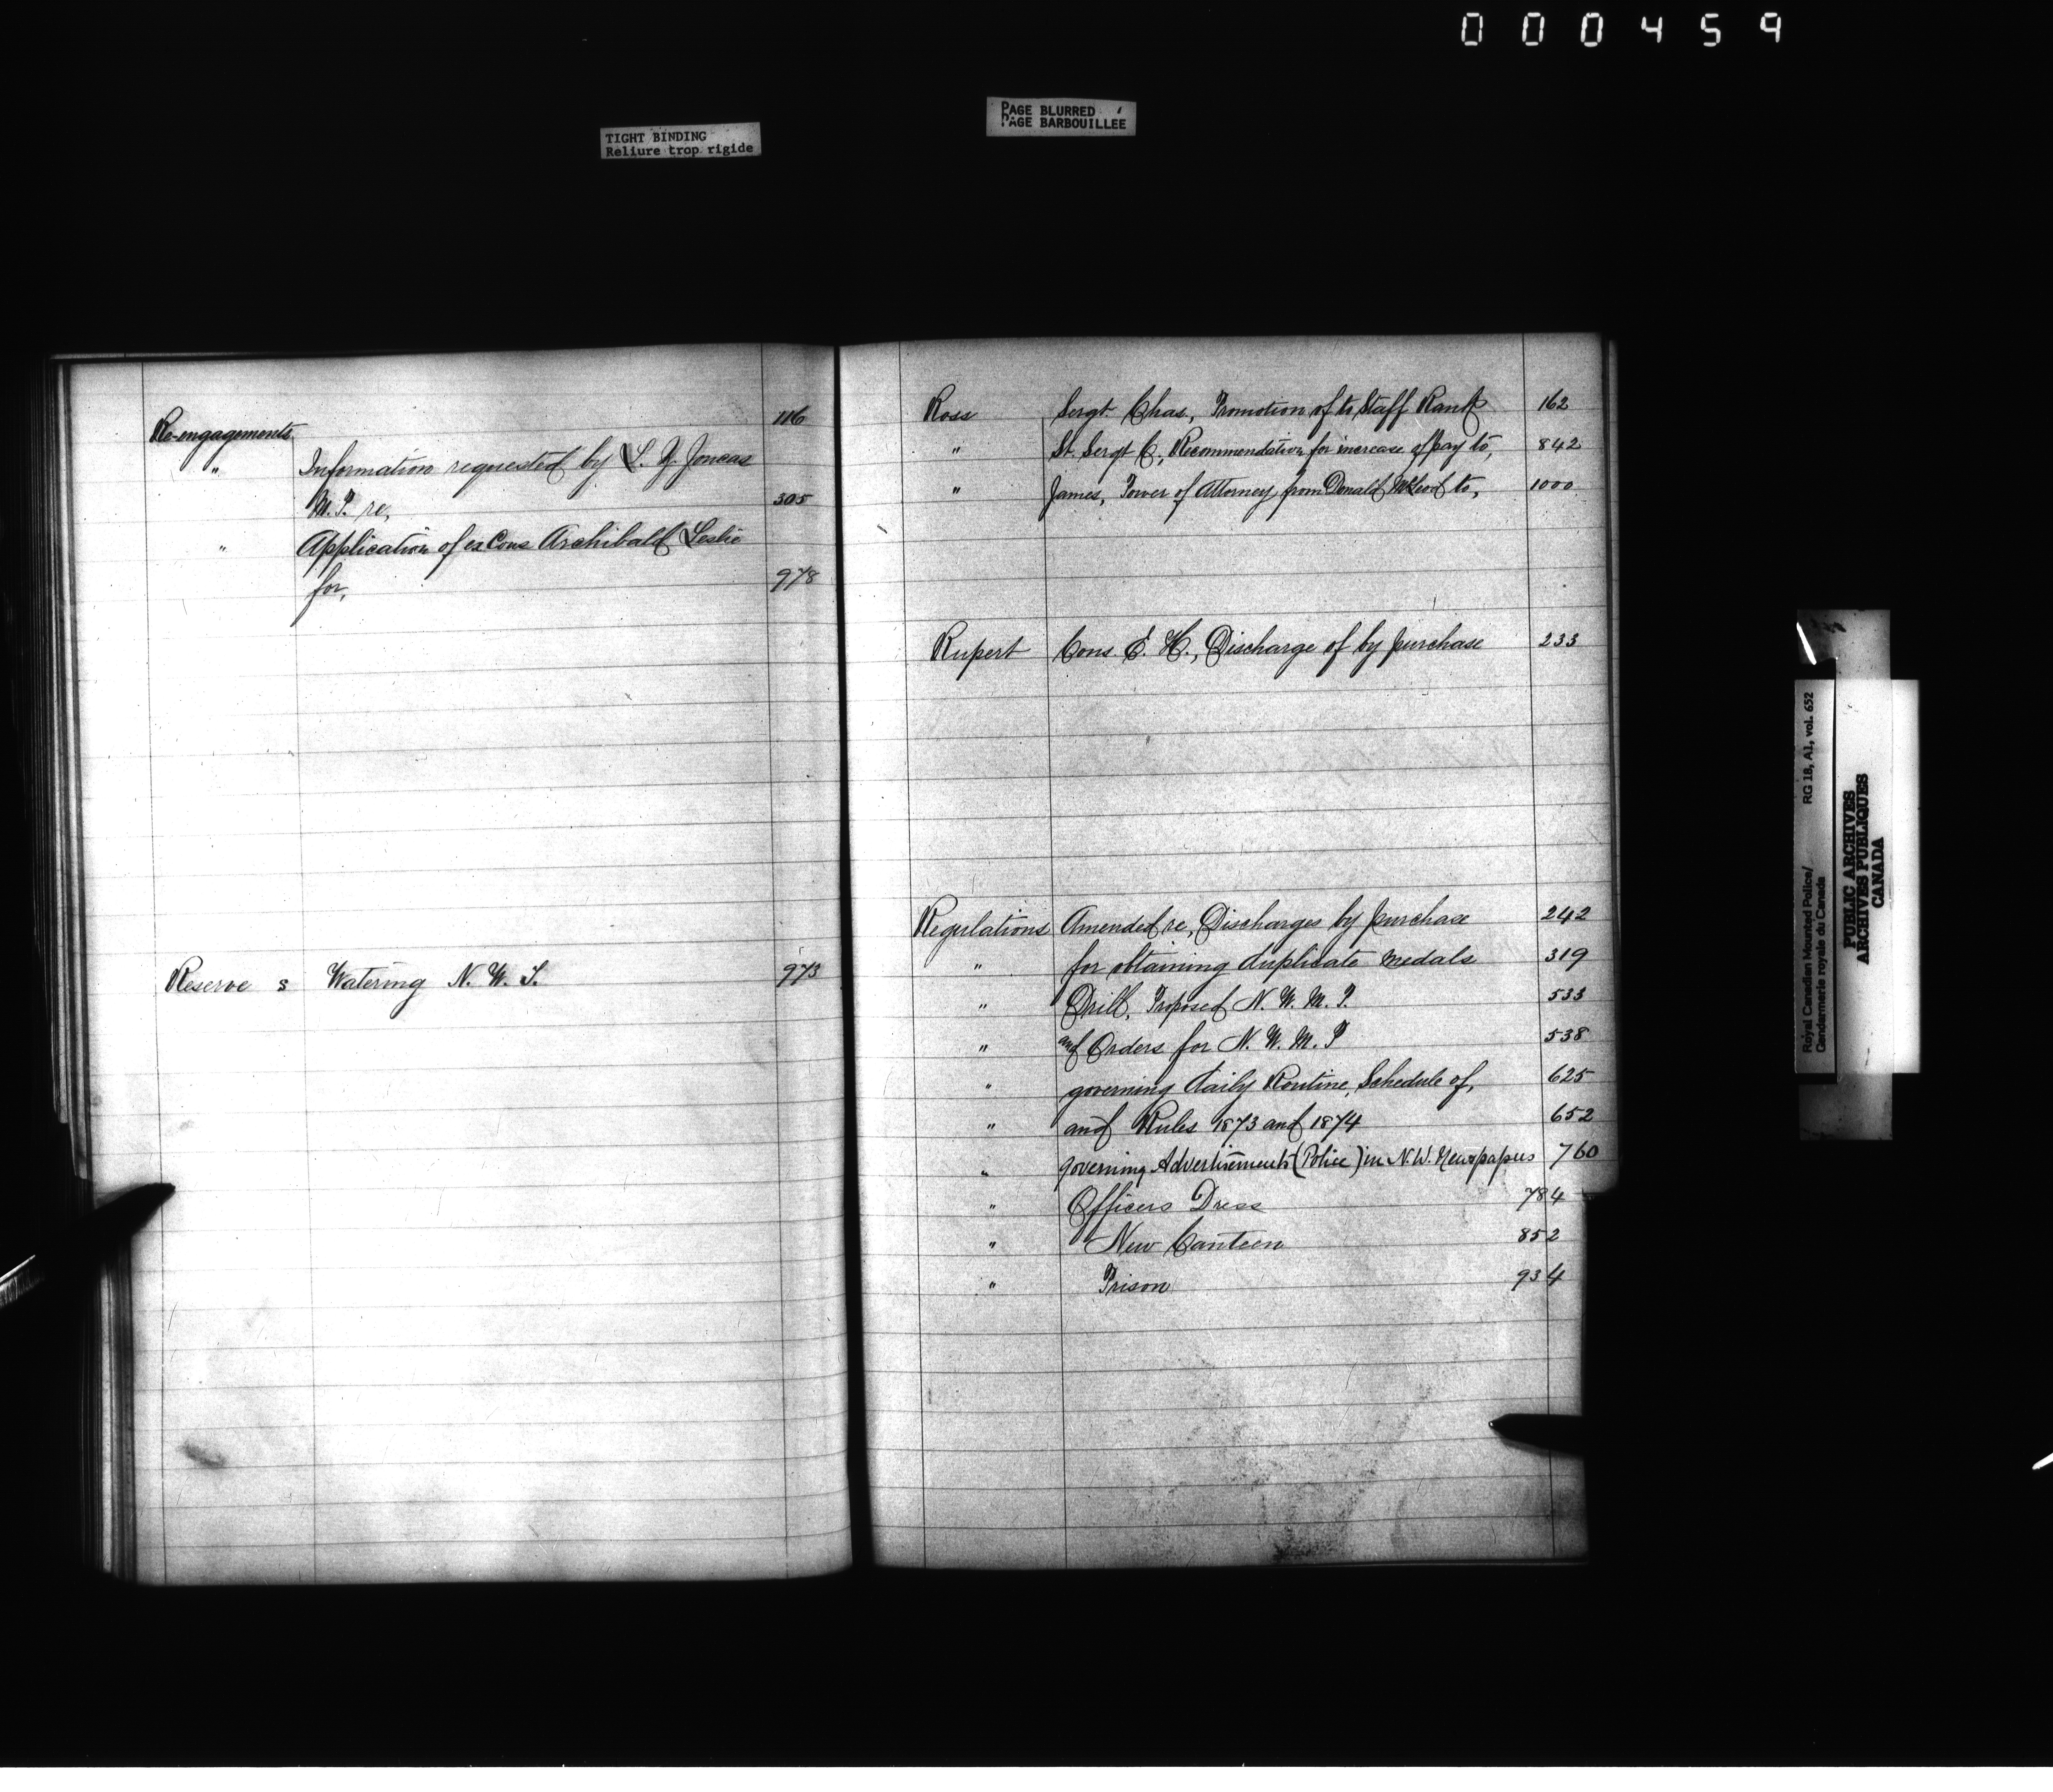 000459
TIGHT BINDING
Reliure trop rigide
PAGE BLURRED
PAGE BARBOUILLÉE
Re-engagements 116
" Information requested by L. Z. Joncas
M. P. re, 305
" Application of ex Cons Archibald Leslie
for, 978
Reserve s Watering N. W. T. 973
Ross Sergt. Chas, Promotion of to Staff Rank 162
" St. Sergt C, Recommendation for increase of pay to, 842
" James, Power of Attorney from Donald McLeod to, 1000
Rupert Cons. E. H., Discharge of by purchase 233
Regulations Amended re, Discharges by purchase 242
" for obtaining duplicate medals 319
" Drill, Proposed N. W. M. P. 533
" and Orders for N. W. M. P 538
" governing daily Routine, Schedule of, 625
" and Rules 1873 and 1874 652
" governing Advertisements (Police) in N.W. Newspapers 760
" Officers Dress 784
" New Canteen 852
" Prison 934
Royal Canadian Mounted Police/ RG 18, A1, vol. 652
Gendarmerie royale du Canada
PUBLIC ARCHIVES
ARCHIVES PUBLIQUES
CANADA